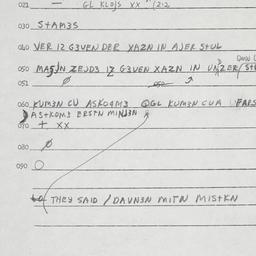 021 — GL KLOJS XX
030 STAM3S
040 VER IZ G3VEN DER XAZN IN AJER SHUL
050 MAJN ZEJD3 IZ G3VEN XAZN IN UNZER
051 Ø
060 KUM3N CU ASKOQM3 QGL KUM3N CUA
ASTKOM3 ERSTN MINJ3N
070 + XX
080 Ø
090 O
THEY SAID / DAVN3N MITN MISTKN